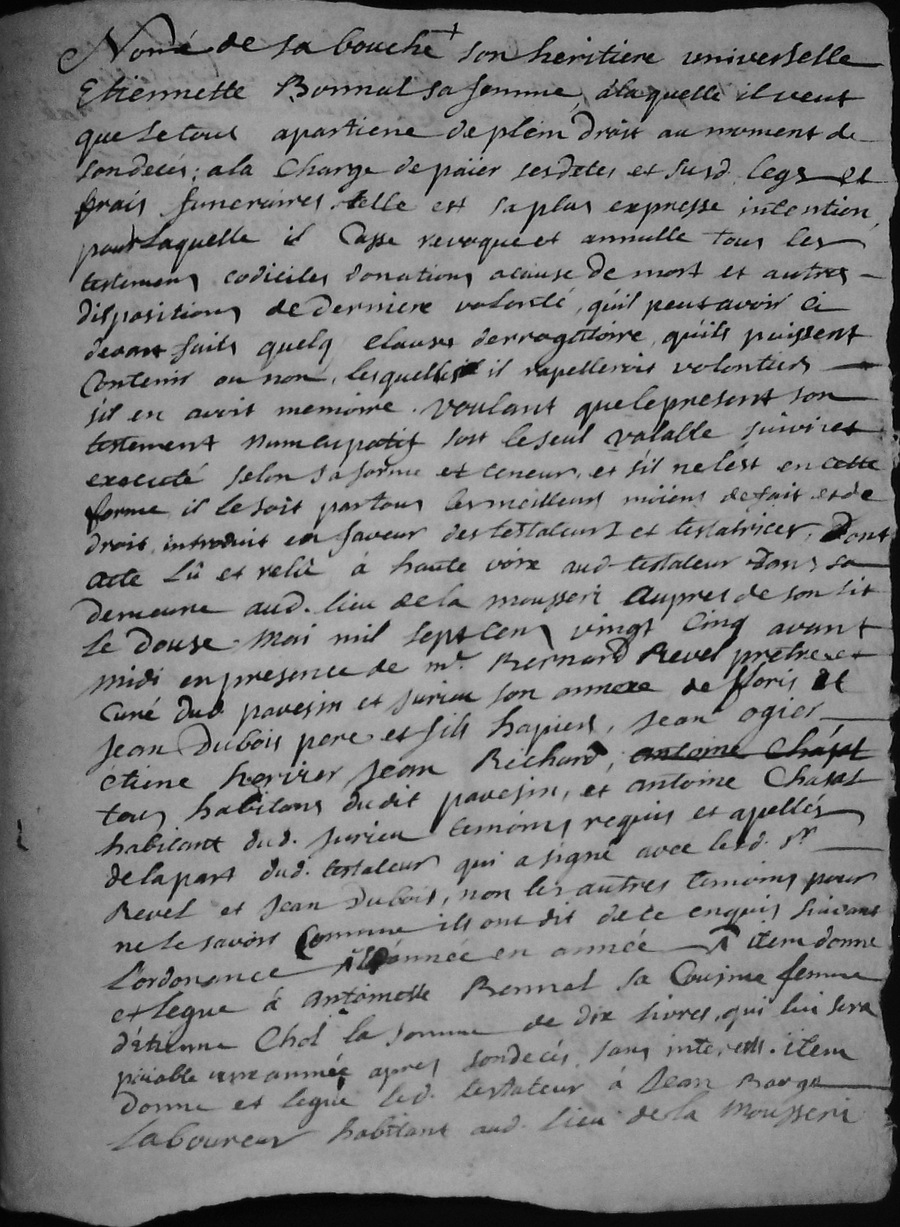 Nomé de sa bouche + son heritiere universelle
Etiennette Bonnal sa femme, alaquelle il veut
que le tous apartiene de plein droit au moment de
son decés; a la Charge de païer ses detes et susd. legs et
frais funeraires. telle est sa plus expresse intention
pour laquelle il Casse revoque et annulle tous les
testemens codiciles donations a cause de mort et autres
dispositions de derniere volonté, qu'il peut avoir ci
devant faits quelq clause derrogatoire, qu'ils puissent
Contenir ou non, lesquelles il rapelleroit volontiers
s'il en avoit memoire. voulant que le present son
testement nuncupatif soit le seul valable suivi et
executé selon sa forme et teneur, et s'il ne lest en cette
forme il le soit par tous les meilleurs moiens de fait et de
droit, introduit en faveur des testateurs et testatrices, Dont
acte Lû et relû à haute voix aud. testateur dans sa
demeure aud. lieu de la mousseri aupres de son lit
le douse Mai mil sept cens vingt Cinq avant
midi en presence de mr. Bernard Revel prêtre et
Curé dud pavesin et surieu son annexe de floris et
Jean Dubois pere et fils, Jean ogier
etiene Jean Richard, antoine
tous habitans dudit pavesin, et antoine
habitant dud. surieu temoins requis et apellés
de la part dud. testateur qui a signé avec lesd. Sr.
Revel et Jean Dubois, non les autres temoins pour
ne le savoir Comme ils ont dit de ce enquis suivant
L'ordonence année en année item donne
et legue à antoinette Bonnal sa Cousine femme
d'Etienne Chol la somme de dix livres, qui lui sera
païable une année apres son decés, sans interets. item
donne et legue led. testateur à Jean
Laboureur habitant aud. lieu de la Mousseri